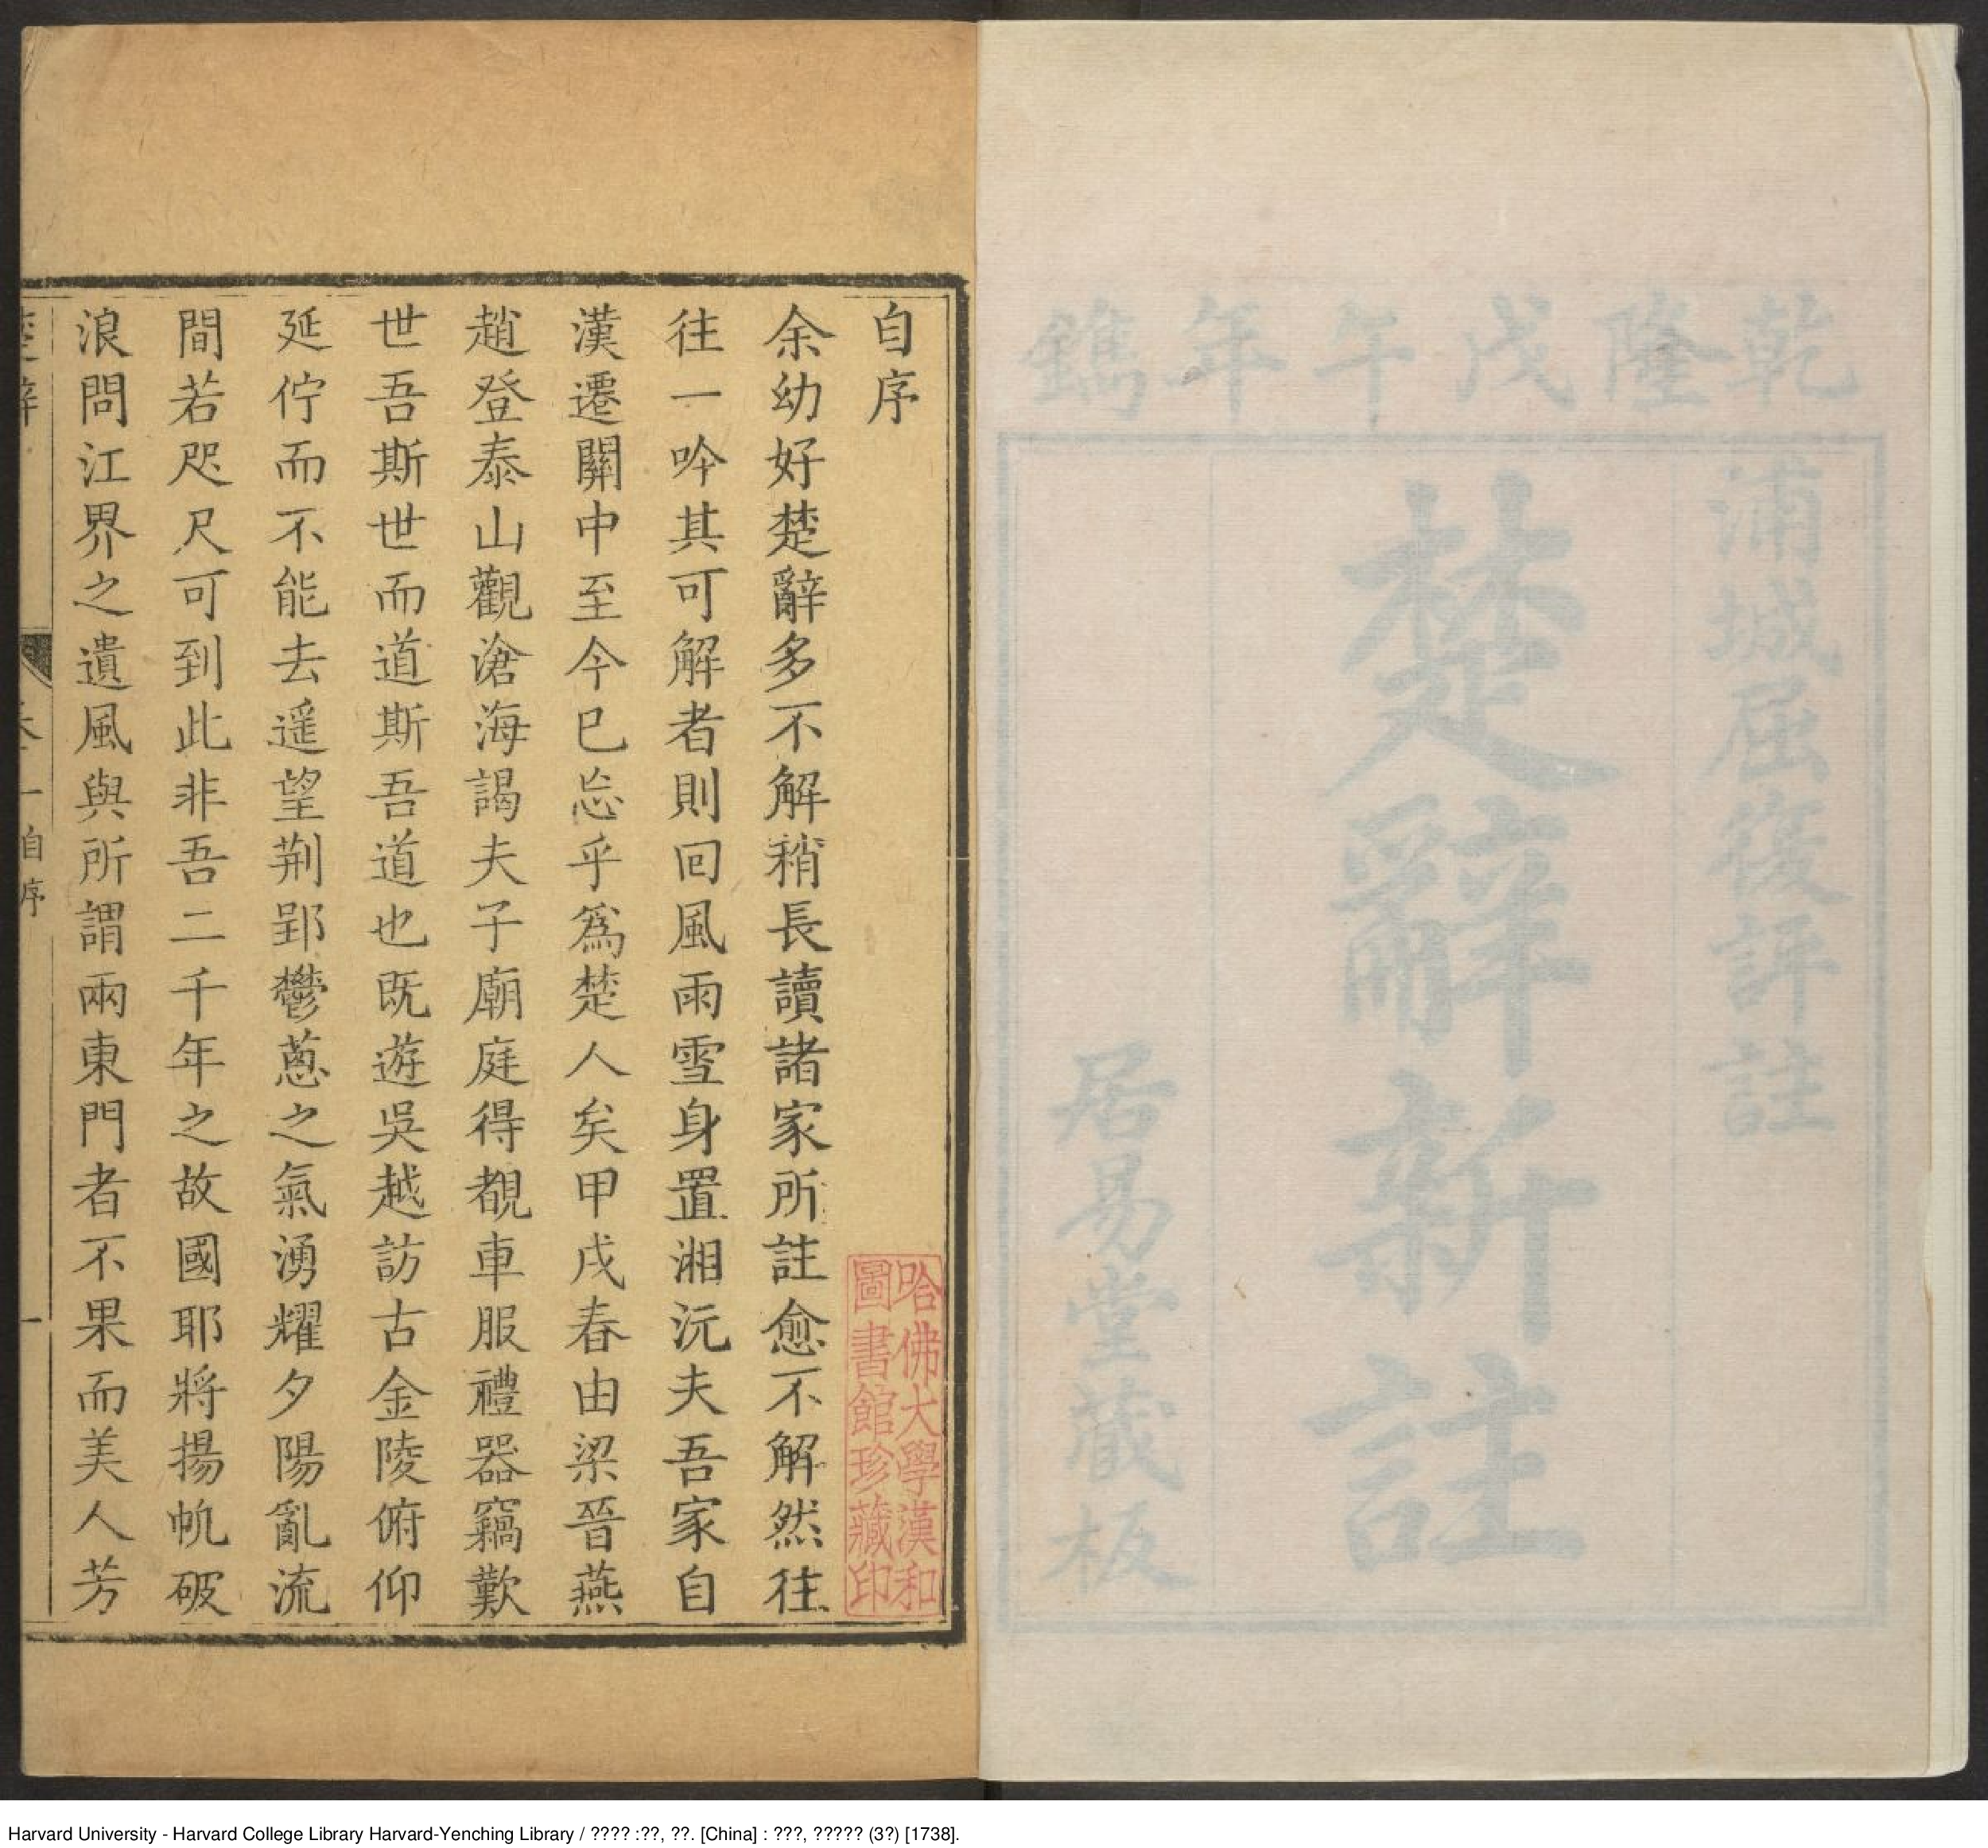 乾隆戊午年鐫
浦城屈復評註
楚辭新註
居易堂藏板
自序
余幼好楚辭多不解稍長讀諸家所註愈不解然往
往一吟其可解者則回風雨雪身置湘沅夫吾家自
漢遷關中至今已忘乎爲楚人矣甲戌春由梁晉燕
趙登泰山觀滄海謁夫子廟庭得覩車服禮器竊歎
世吾斯世而道斯吾道也既遊吳越訪古金陵俯仰
延佇而不能去遥望荆郢鬱蔥之氣湧耀夕陽亂流
間若咫尺可到此非吾二千年之故國耶將揚帆破
浪問江界之遺風與所謂兩東門者不果而美人芳
自序
一
哈佛大學漢和
圖書館珍藏印
Harvard University - Harvard College Library Harvard-Yenching Library / ???? :??, ??. [China] : ???, ????? (3?) [1738].